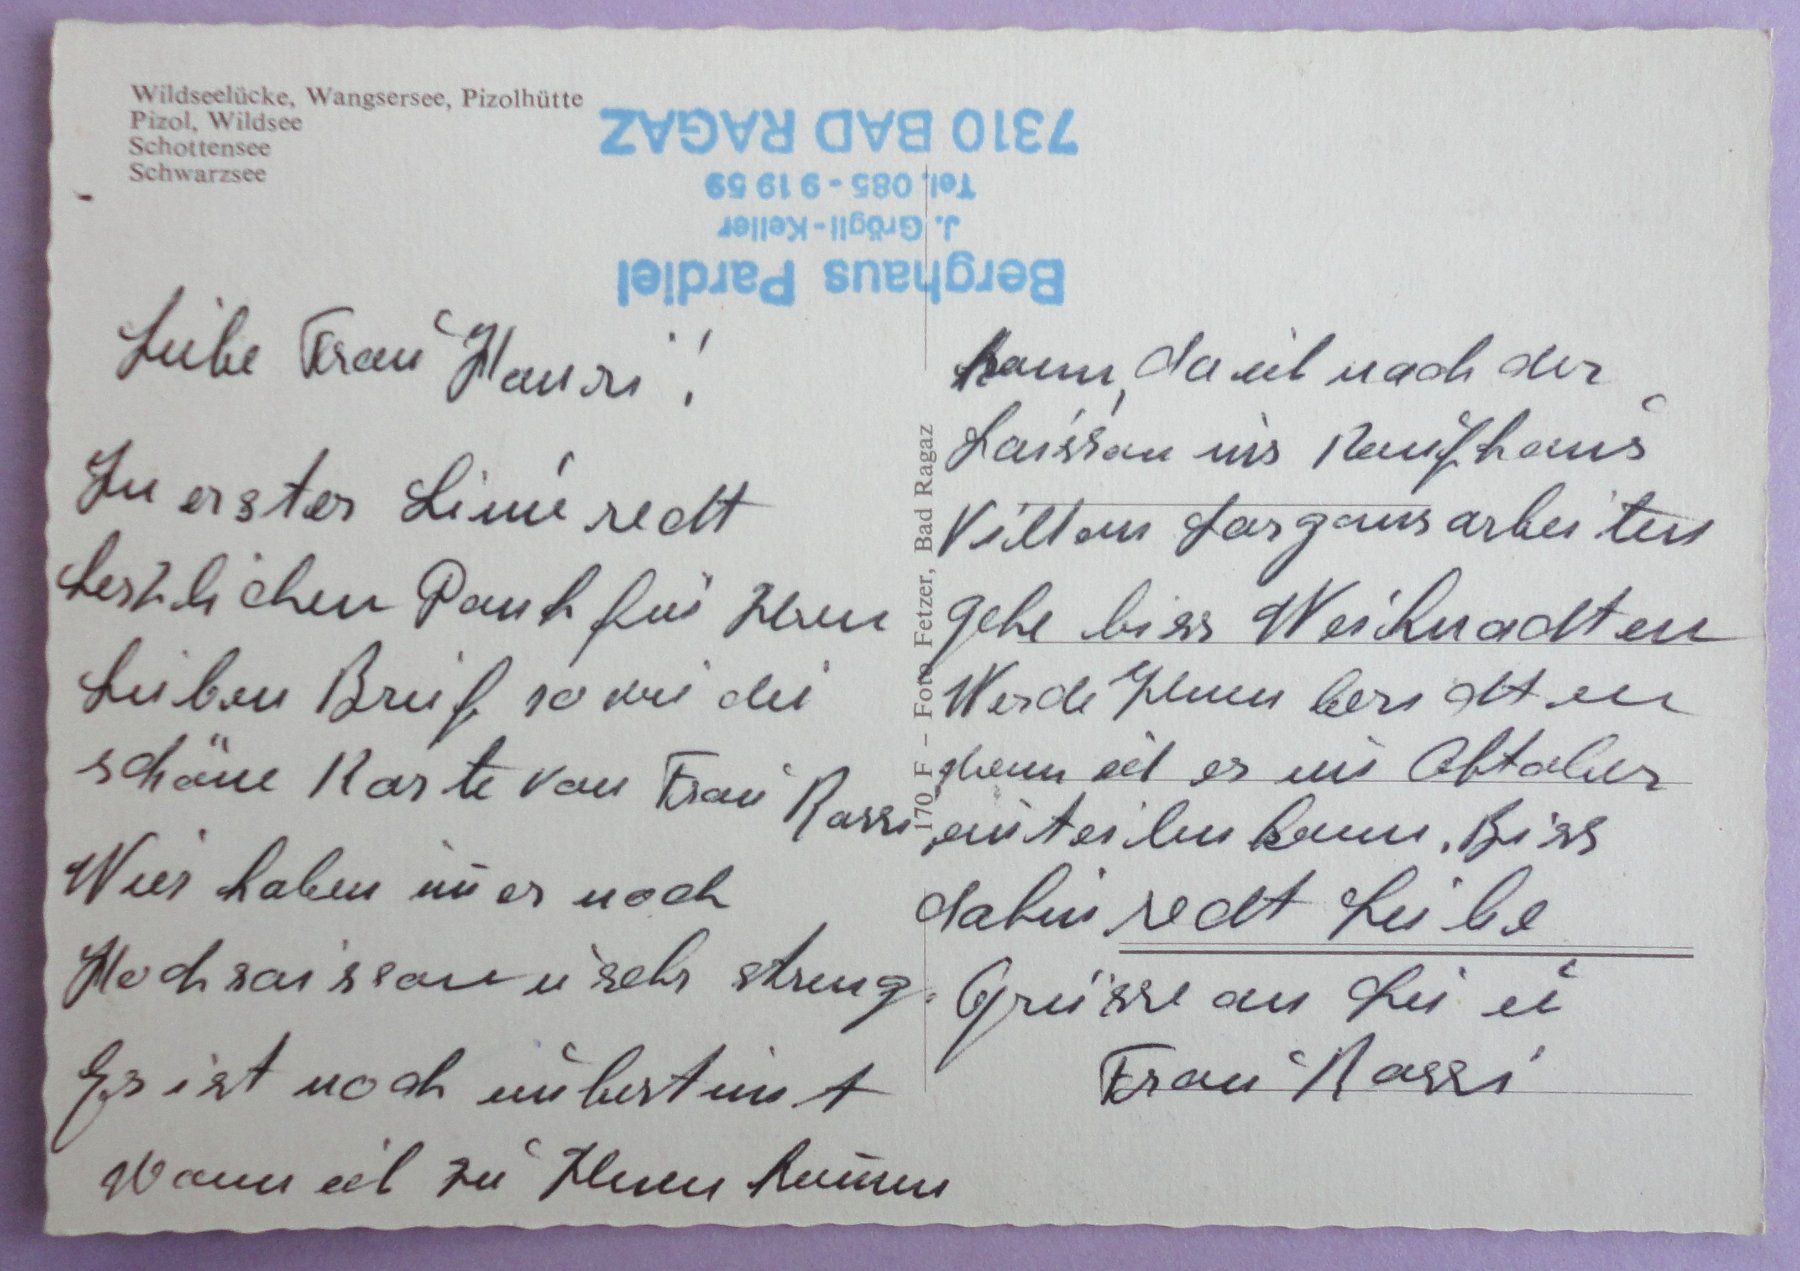 Wildseelücke, Wangsersee, Pizolhütte
Pizol, Wildsee
Schottensee
Schwarzsee
Berghaus Pardiel
J. Grögli-Keller
Tel. 085 - 9 19 59
7310 BAD RAGAZ
Liebe Frau Hauri!
In erster Linie recht
herzlichen Dank für Ihren
Lieben Brief sowie die
schöne Karte von Frau Rassi
Wier haben im̅er noch
Hochsaisson u sehr streng.
Es ist noch unbestimt
wann ich zu Ihnen kom̅en
kann, da ich nach der
Saisson ins Kaufhaus
Vilton Sargans arbeiten
gehe biss Weihnachten
Werde Ihnen berichten
wenn ich es im Oktober
einteilen kann. Biss
dahin recht Liebe
Grüsse an Sie u
Frau Rassi
170 F – Foto Fetzer, Bad Ragaz